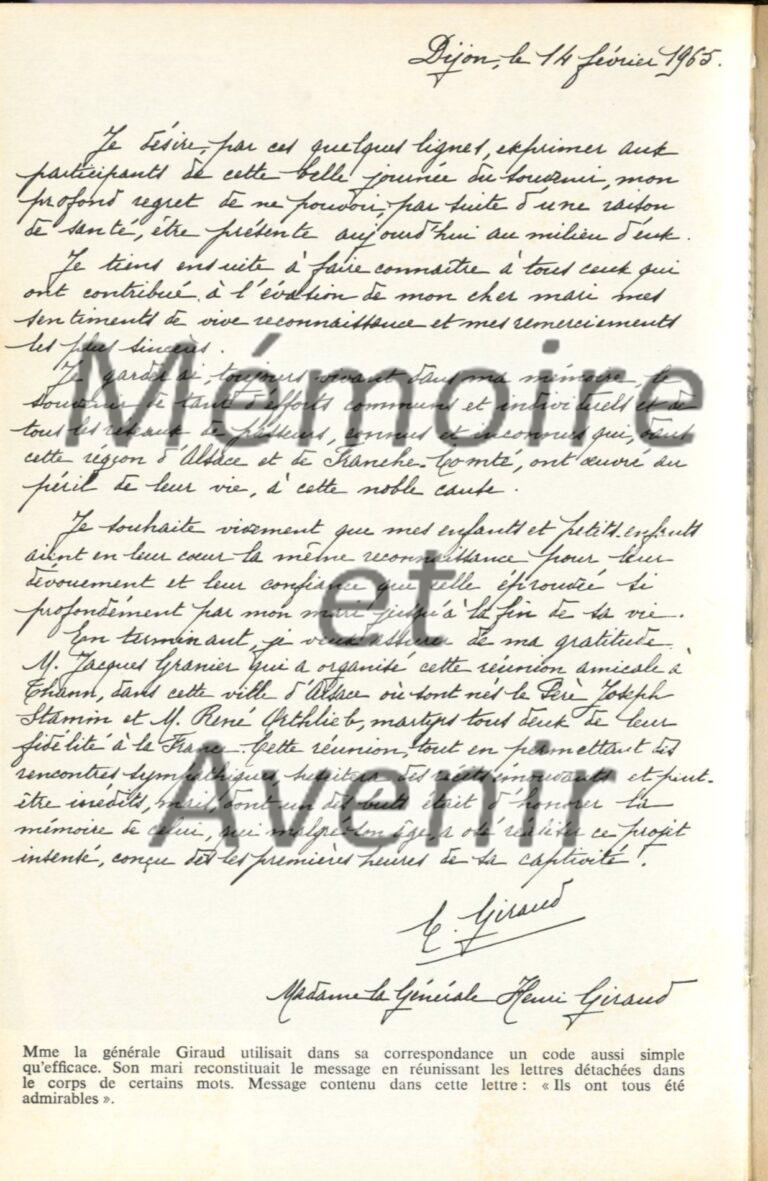 Dijon, le 14 février 1965.
Je désire, par ces quelques lignes, exprimer aux
participants de cette belle journée du souvenir, mon
profond regret de ne pouvoir, par suite d'une raison
de santé, être présente aujourd'hui au milieu d'eux.
Je tiens ensuite à faire connaître à tous ceux qui
ont contribué à l'évasion de mon cher mari mes
sentiments de vive reconnaissance et mes remerciements
les plus sincères.
Je garderai, toujours vivant dans ma mémoire, le
souvenir de tant d'efforts communs et individuels et de
tous les réseaux de passeurs, connus et inconnus qui, dans
cette région d'Alsace et de Franche-Comté, ont œuvré au
péril de leur vie, à cette noble cause.
Je souhaite vivement que mes enfants et petits-enfants
aient en leur cœur la même reconnaissance pour leur
dévouement et leur confiance que celle éprouvée si
profondément par mon mari jusqu'à la fin de sa vie.
En terminant, je veux assurer de ma gratitude
M. Jacques Granier qui a organisé cette réunion amicale à
Thann, dans cette ville d'Alsace où sont nés le Père Joseph
Stamin et M. René Orthlieb, martyrs tous deux de leur
fidélité à la France. Cette réunion, tout en permettant des
rencontres sympathiques suscitera des récits émouvants et peut-
être inédits, mais dont un des buts était d'honorer la
mémoire de celui, qui malgré son âge, a osé réaliser ce projet
insensé, conçu dès les premières heures de sa captivité !
Giraud
Madame la Générale Henri Giraud
Mme la générale Giraud utilisait dans sa correspondance un code aussi simple
qu'efficace. Son mari reconstituait le message en réunissant les lettres détachées dans
le corps de certains mots. Message contenu dans cette lettre : « Ils ont tous été
admirables ».
Mémoire
et
Avenir